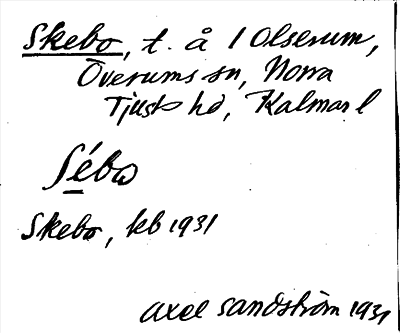 Skebo, t. å / Olserum,
Överums sn, Norra
Tjusts hd, Kalmar l
Sébω
Skebo, kb 1931
Axel Sandström 1931